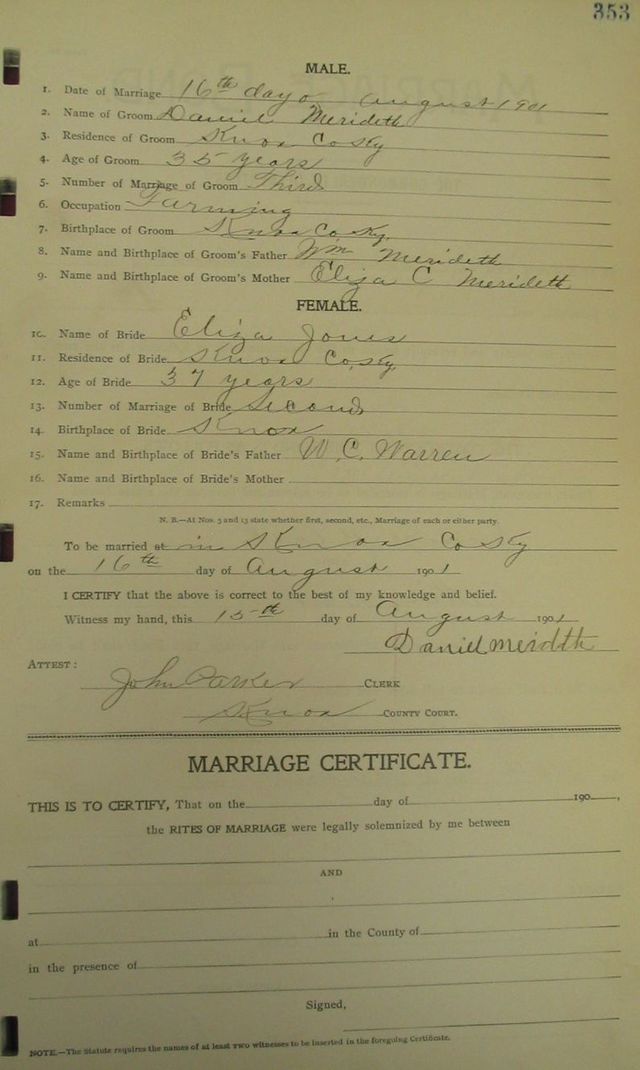 353
MALE.
1. Date of Marriage 16th day o August 1901
2. Name of Groom Daniel Merideth
3. Residence of Groom Knox Co Ky
4. Age of Groom 35 years
5. Number of Marriage of Groom Third
6. Occupation Farming
7. Birthplace of Groom Knox Co. Ky.
8. Name and Birthplace of Groom's Father Wm Merideth
9. Name and Birthplace of Groom's Mother Eliza C Merideth
FEMALE.
10. Name of Bride Eliza Jones
11. Residence of Bride Knox Co. Ky.
12. Age of Bride 37 years
13. Number of Marriage of Bride Second
14. Birthplace of Bride Knox
15. Name and Birthplace of Bride's Father W. C. Warren
16. Name and Birthplace of Bride's Mother
17. Remarks
N. B.—At Nos. 5 and 13 state whether first, second, etc., Marriage of each or either party.
To be married at in Knox Co Ky
on the 16th day of August 1901
I CERTIFY that the above is correct to the best of my knowledge and belief.
Witness my hand, this 15th day of August 1901
Daniel Meridth
ATTEST:
John Parker CLERK
Knox COUNTY COURT.
MARRIAGE CERTIFICATE.
THIS IS TO CERTIFY, That on the day of 190 ,
the RITES OF MARRIAGE were legally solemnized by me between
AND
at in the County of
in the presence of
Signed,
NOTE.—The Statute requires the names of at least TWO witnesses to be inserted in the foregoing Certificate.